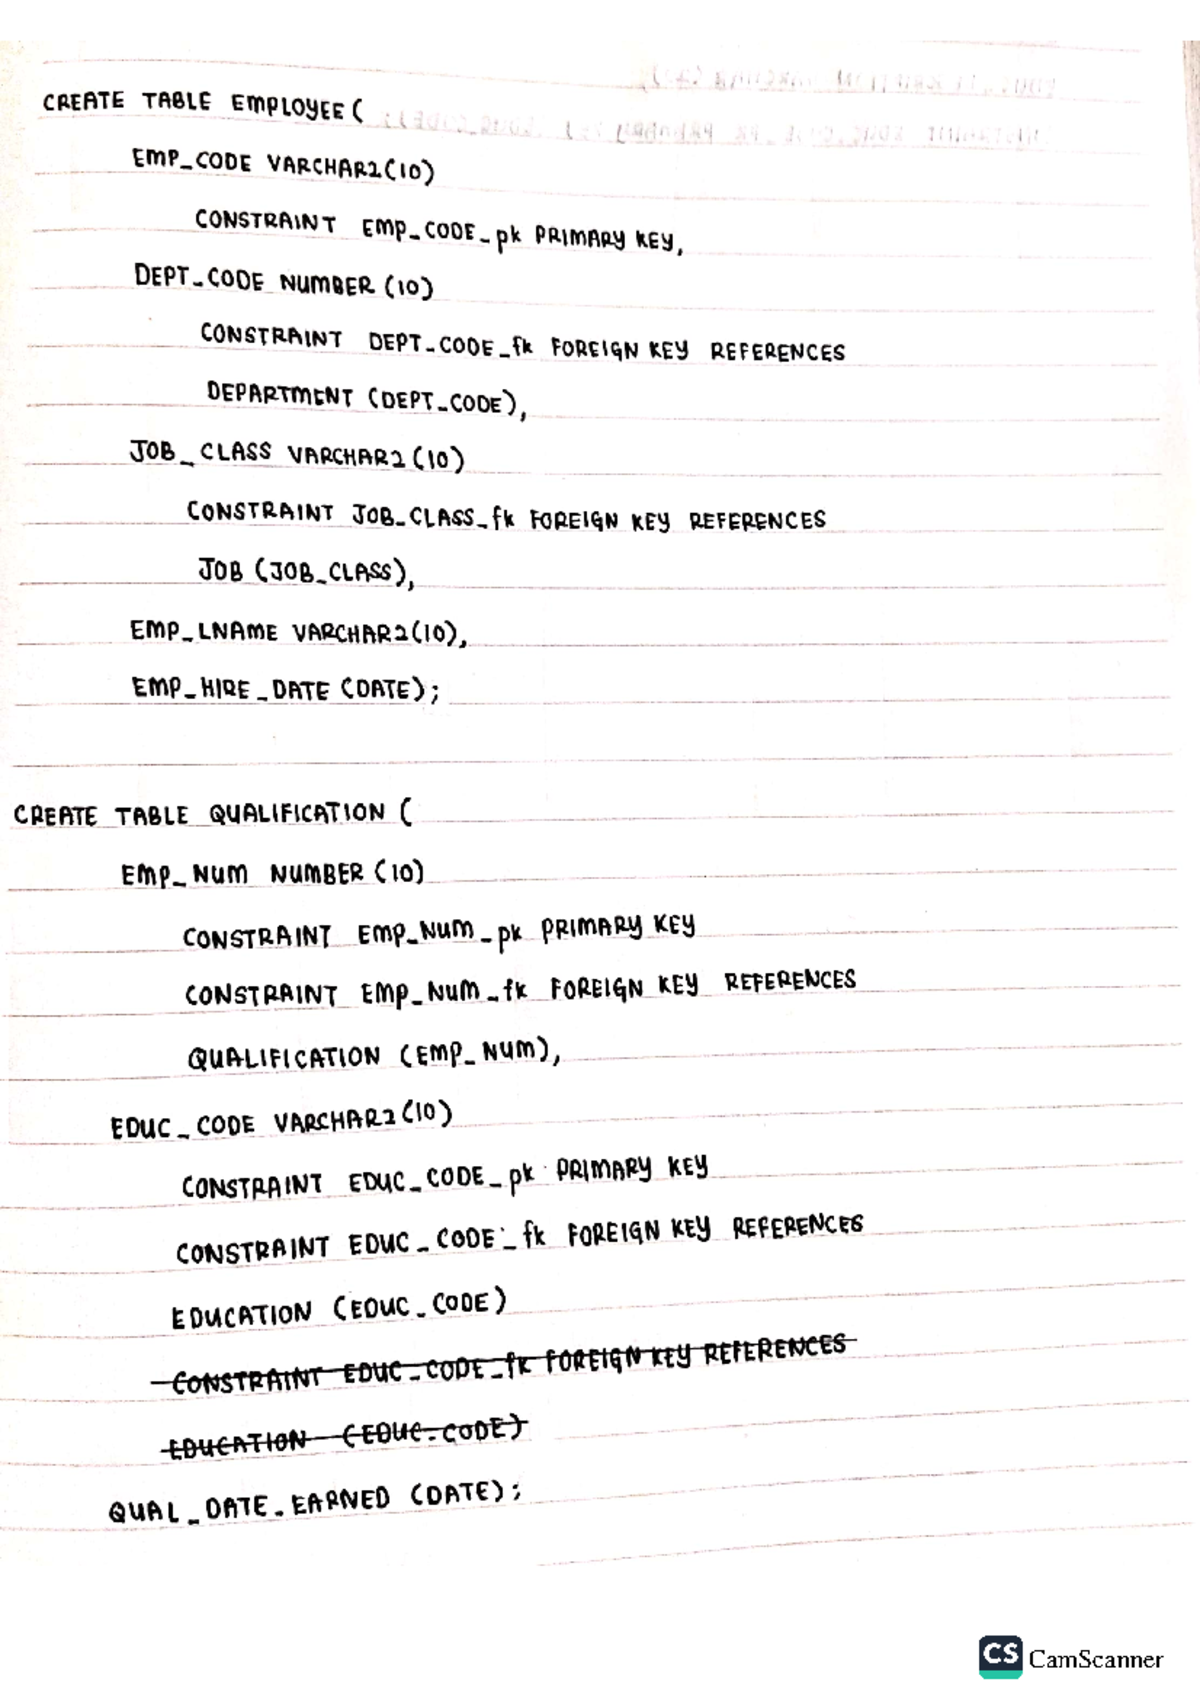 CREATE TABLE EMPLOYEE (
EMP_CODE VARCHAR2(10)
CONSTRAINT EMP_CODE_pk PRIMARY KEY,
DEPT_CODE NUMBER (10)
CONSTRAINT DEPT_CODE_fk FOREIGN KEY REFERENCES
DEPARTMENT (DEPT_CODE),
JOB_CLASS VARCHAR2 (10)
CONSTRAINT JOB_CLASS_fk FOREIGN KEY REFERENCES
JOB (JOB_CLASS),
EMP_LNAME VARCHAR2(10),
EMP_HIRE_DATE (DATE);
CREATE TABLE QUALIFICATION (
EMP_NUM NUMBER (10)
CONSTRAINT EMP_NUM_pk PRIMARY KEY
CONSTRAINT EMP_NUM_fk FOREIGN KEY REFERENCES
QUALIFICATION (EMP_NUM),
EDUC_CODE VARCHAR2 (10)
CONSTRAINT EDUC_CODE_pk PRIMARY KEY
CONSTRAINT EDUC_CODE_fk FOREIGN KEY REFERENCES
EDUCATION (EDUC_CODE)
CONSTRAINT EDUC_CODE_fk FOREIGN KEY REFERENCES
EDUCATION (EDUC_CODE)
QUAL_DATE_EARNED (DATE);
CS CamScanner